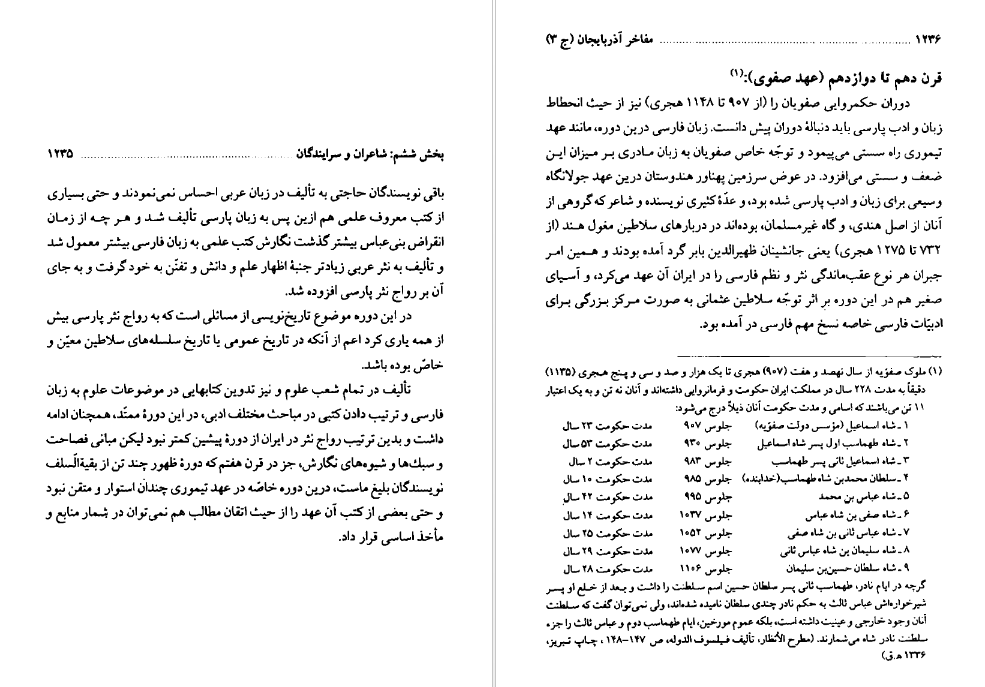 ۱۲۳۶ ........ مفاخر آذربایجان (ج ۳)
قرن دهم تا دوازدهم (عهد صفوی):(۱)
دوران حکمروایی صفویان را (از ۹۰۷ تا ۱۱۴۸ هجری) نیز از حیث انحطاط
زبان و ادب پارسی باید دنبالهٔ دوران پیش دانست. زبان فارسی درین دوره، مانند عهد
تیموری راه سستی می‌پیمود و توجّه خاص صفویان به زبان مادری بر میزان این
ضعف و سستی می‌افزود. در عوض سرزمین پهناور هندوستان درین عهد جولانگاه
وسیعی برای زبان و ادب پارسی شده بود، و عدّهٔ کثیری نویسنده و شاعر که گروهی از
آنان از اصل هندی، و گاه غیرمسلمان، بوده‌اند در دربارهای سلاطین مغول هند (از
۷۳۲ تا ۱۲۷۵ هجری) یعنی جانشینان ظهیرالدین بابر گرد آمده بودند و همین امر
جبران هر نوع عقب‌ماندگی نثر و نظم فارسی را در ایران آن عهد می‌کرد، و آسیای
صغیر هم در این دوره بر اثر توجّه سلاطین عثمانی به صورت مرکز بزرگی برای
ادبیّات فارسی خاصه نسخ مهم فارسی در آمده بود.
(۱) ملوک صفوّیه از سال نهصد و هفت (۹۰۷) هجری تا یک هزار و صد و سی و پنج هجری (۱۱۳۵)
دقیقاً به مدت ۲۲۸ سال در مملکت ایران حکومت و فرمانروایی داشته‌اند و آنان نه تن و به یک اعتبار
۱۱ تن می‌باشند که اسامی و مدت حکومت آنان ذیلاً درج می‌شود:
۱ ـ شاه اسماعیل (مؤسس دولت صفوّیه) جلوس ۹۰۷ مدت حکومت ۲۳ سال
۲ ـ شاه طهماسب اول پسر شاه اسماعیل جلوس ۹۳۰ مدت حکومت ۵۳ سال
۳ ـ شاه اسماعیل ثانی پسر طهماسب جلوس ۹۸۳ مدت حکومت ۲ سال
۴ ـ سلطان محمد بن شاه طهماسب (خدابنده) جلوس ۹۸۵ مدت حکومت ۱۰ سال
۵ ـ شاه عباس بن محمد جلوس ۹۹۵ مدت حکومت ۴۲ سال
۶ ـ شاه صفی بن شاه عباس جلوس ۱۰۳۷ مدت حکومت ۱۴ سال
۷ ـ شاه عباس ثانی بن شاه صفی جلوس ۱۰۵۲ مدت حکومت ۲۵ سال
۸ ـ شاه سلیمان بن شاه عباس ثانی جلوس ۱۰۷۷ مدت حکومت ۲۹ سال
۹ ـ شاه سلطان حسین‌بن سلیمان جلوس ۱۱۰۶ مدت حکومت ۲۸ سال
گرچه در ایام نادر، طهماسب ثانی پسر سلطان حسین اسم سلطنت را داشت و بعد از خلع او پسر
شیرخواره‌اش عباس ثالث به حکم نادر چندی سلطان نامیده شده‌اند، ولی نمی‌توان گفت که سلطنت
آنان وجود خارجی و عینیت داشته است، بلکه عموم مورخین، ایام طهماسب دوم و عباس ثالث را جزء
سلطنت نادر شاه می‌شمارند. (مطرح الأنظار، تألیف فیلسوف الدوله، ص ۱۴۷–۱۴۸، چاپ تبریز،
۱۳۳۶ ه‍.ق)
بخش ششم: شاعران و سرایندگان ........ ۱۲۳۵
باقی نویسندگان حاجتی به تألیف در زبان عربی احساس نمی‌نمودند و حتی بسیاری
از کتب معروف علمی هم ازین پس به زبان پارسی تألیف شد و هر چه از زمان
انقراض بنی‌عباس بیشتر گذشت نگارش کتب علمی به زبان فارسی بیشتر معمول شد
و تألیف به نثر عربی زیادتر جنبهٔ اظهار علم و دانش و تفنّن به خود گرفت و به جای
آن بر رواج نثر پارسی افزوده شد.
در این دوره موضوع تاریخ‌نویسی از مسائلی است که به رواج نثر پارسی بیش
از همه یاری کرد اعم از آنکه در تاریخ عمومی یا تاریخ سلسله‌های سلاطین معیّن و
خاصّ بوده باشد.
تألیف در تمام شعب علوم و نیز تدوین کتابهایی در موضوعات علوم به زبان
فارسی و ترتیب دادن کتبی در مباحث مختلف ادبی، در این دورهٔ ممتّد، همچنان ادامه
داشت و بدین ترتیب رواج نثر در ایران از دورهٔ پیشین کمتر نبود لیکن مبانی فصاحت
و سبک‌ها و شیوه‌های نگارش، جز در قرن هفتم که دورهٔ ظهور چند تن از بقیةالسّلف
نویسندگان بلیغ ماست، درین دوره خاصّه در عهد تیموری چندان استوار و متقن نبود
و حتی بعضی از کتب آن عهد را از حیث اتقان مطالب هم نمی‌توان در شمار منابع و
مآخذ اساسی قرار داد.